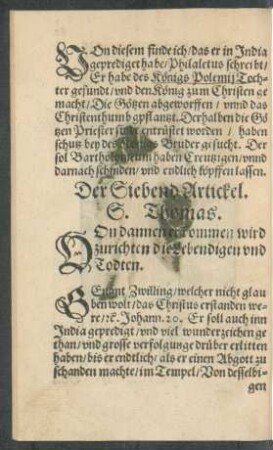 VOn diesem finde ich/ das er in India
geprediget habe/ Philaletus schreibt/
Er habe des Königs Polemij Toch-
ter gesundt/ vnd den König zum Christen ge
macht/ Die Götzen abgeworffen / vnnd das
Christenthumb gpflantzt. Derhalben die Gö
tzen Priester sind entrüstet worden / haben
schutz bey des Königs Bruder gesucht. Der
sol Bartholomeum haben Creutzigen/ vnnd
darnach schinden/ vnd endlich köpffen lassen.
Der Siebend Artickel.
S. Thomas.
VOn dannen er kommen wird
zurichten die Lebendigen vnd
Todten.
GEnant Zwilling/ welcher nicht glau
ben wolt/ das Christus erstanden we-
re/ ꝛc. Johann. 20. Er soll auch inn
India gepredigt/ vnd viel wunderzeichen ge
than/ vnd grosse verfolgunge drüber erlitten
haben/ bis er endtlich/ als er einen Abgott zu
schanden machte/ im Tempel/ Von desselbi-
gen